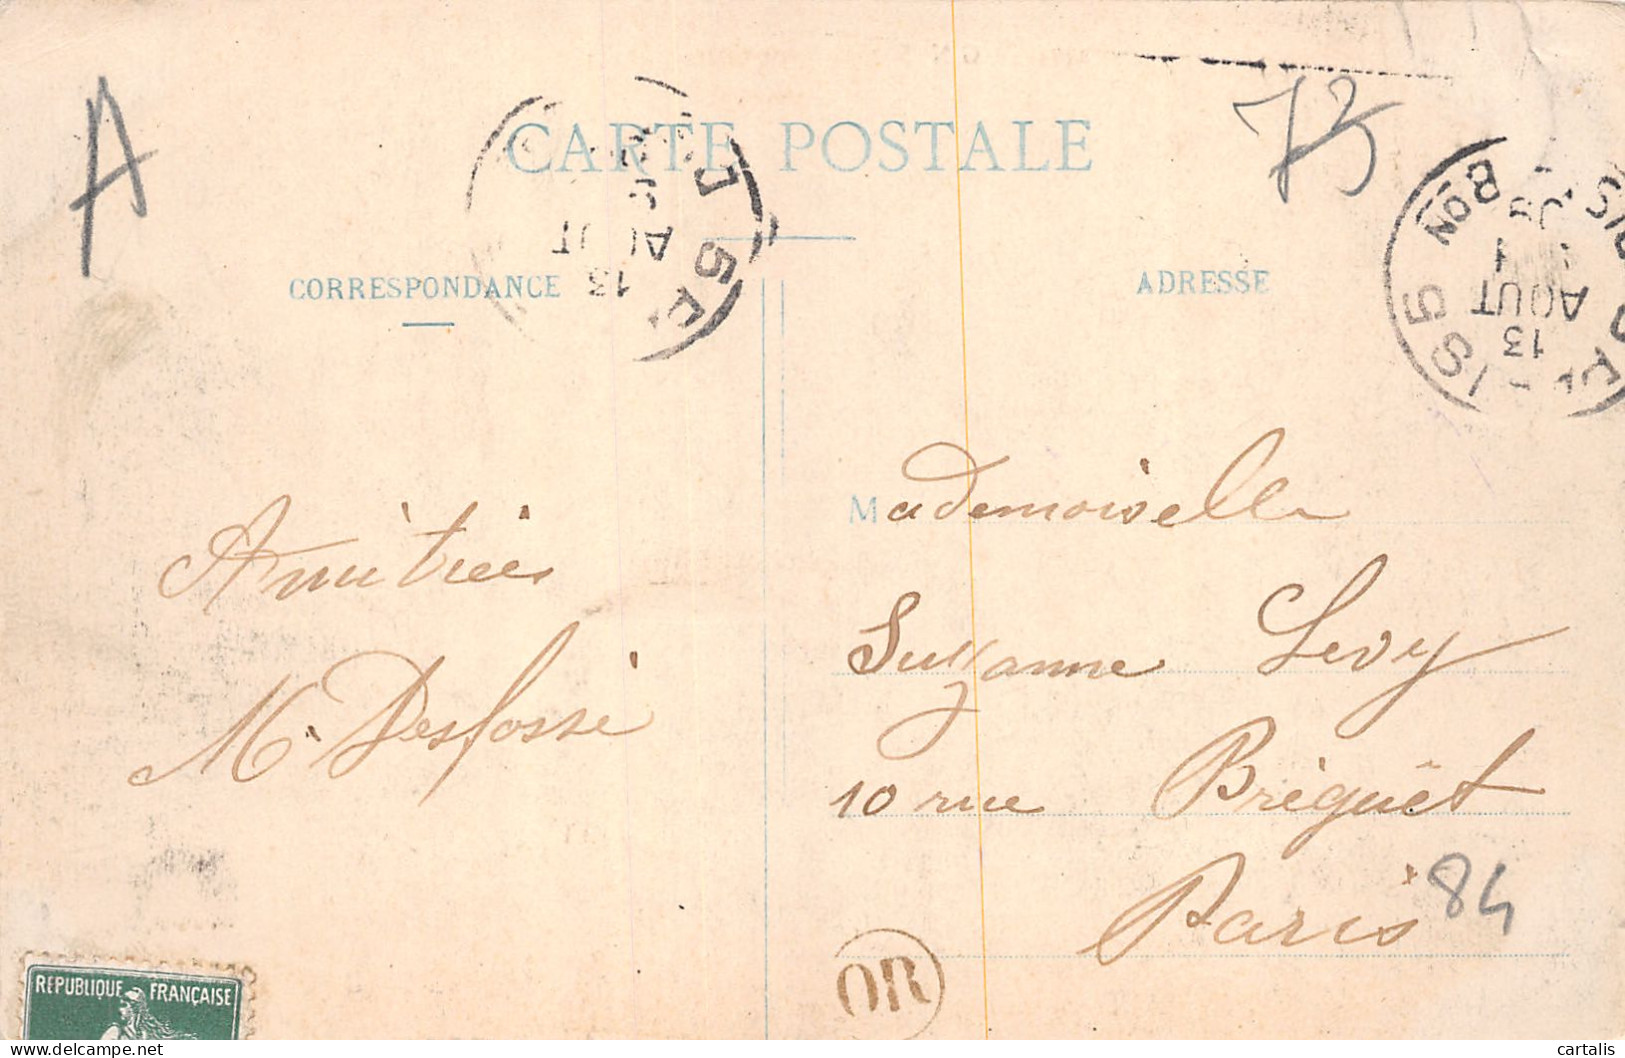 A
CARTE POSTALE
75
CORRESPONDANCE
ADRESSE
13
AOUT
13
AOUT
Bon
Amitiés
M. Desfossé
Mademoiselle
Suzanne Levy
10 rue Bréguet
Paris
84
OR
REPUBLIQUE FRANÇAISE
delcampe.net
cartalis